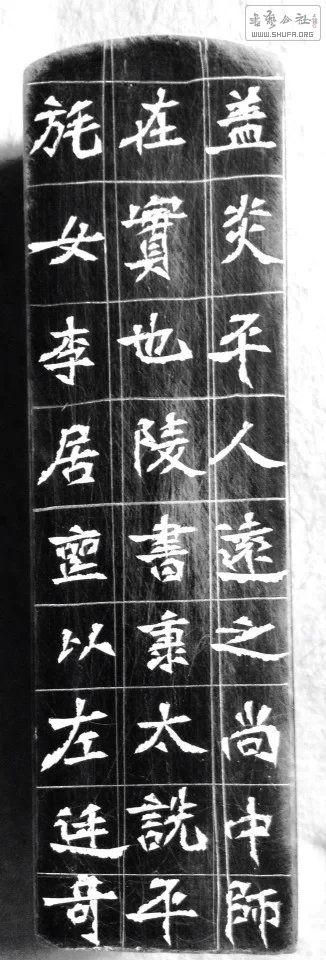 書藝公社
WWW.SHUFA.ORG
盖炎平人遠之尚中師
在實也陵書太說平
旄女李居以左奇